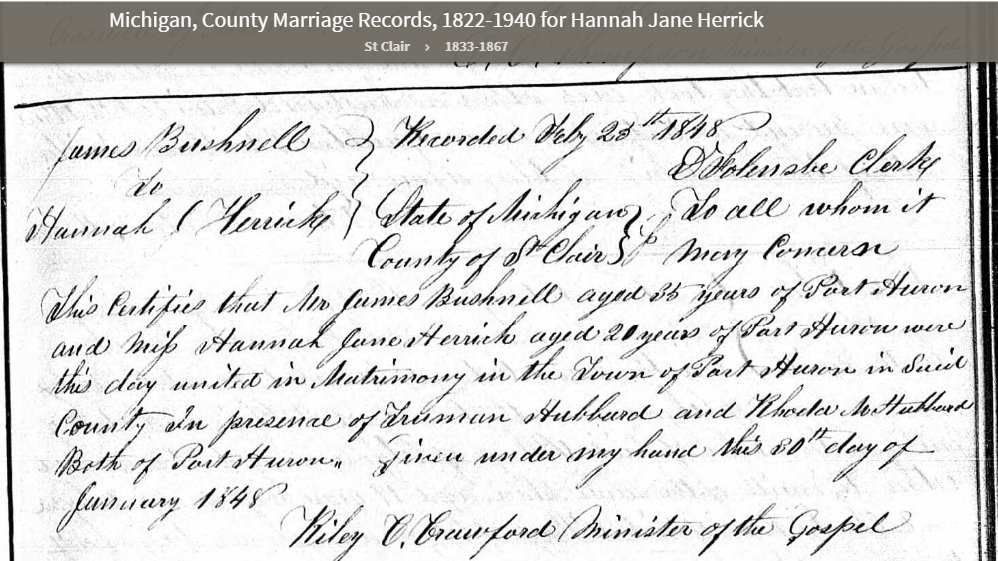 Michigan, County Marriage Records, 1822-1940 for Hannah Jane Herrick
St Clair › 1833-1867
James Bushnell } Recorded Feby 25th 1848
Clerk
To
Hannah J Herrick } State of Michigan } To all whom it
County of St Clair } May Concern
This Certifies that Mr James Bushnell aged 35 years of Port Huron
and Miss Hannah Jane Herrick aged 20 years of Port Huron were
this day united in Matrimony in the Town of Port Huron in Said
County In presence of Truman Hubbard and Rhoda M Hubbard
Both of Port Huron„ Given under my hand this 30th day of
January 1848
Riley C. Crawford Minister of the Gospel